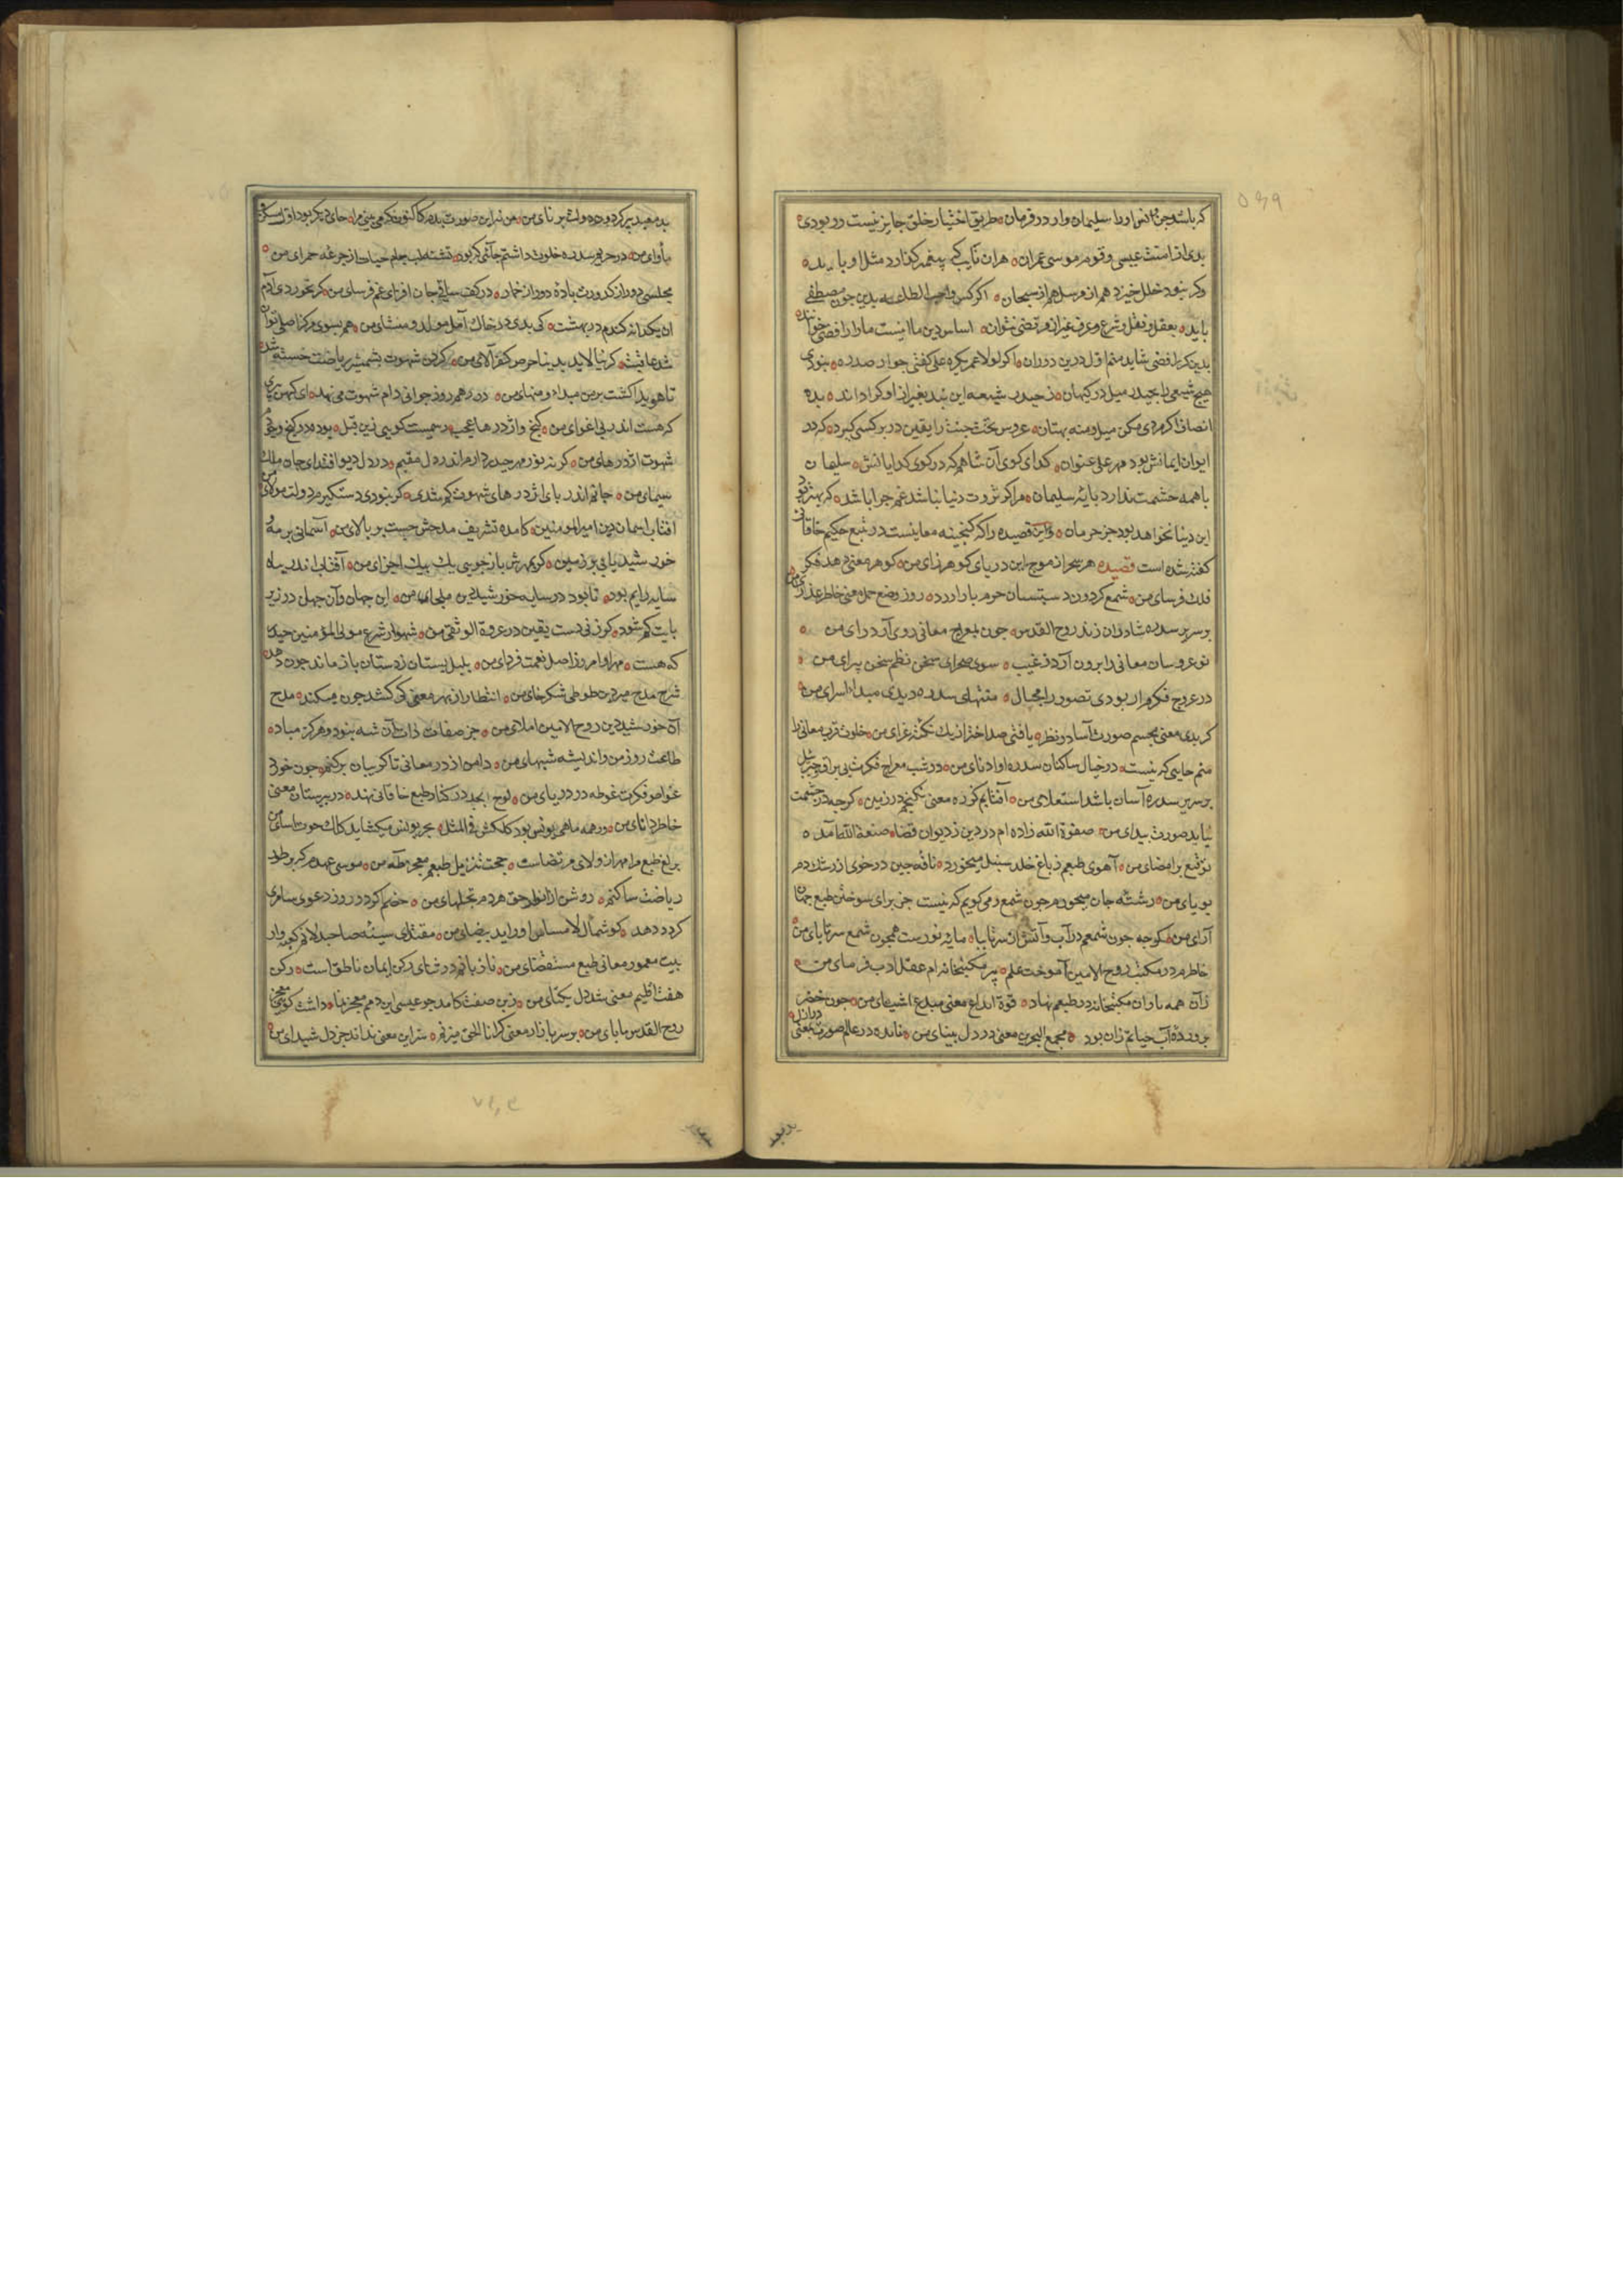 که باشد جن و انس او را سلیمان وار در فرمان ه طریق اختیار خلق جایز نیست در بودی ه
بدی از امت عیسی و قوم موسی عمران ه هران نایب که پیغمبر گذارد مثل او باید ه
وگر نبود خلل خیزد هم از هم از سبحان ه اگر کس واجب به بدین چون مصطفی
باید ه بعقل و نقل و شرع و عرف غیر از مرتضی نتوان ه اساس دین ما اینست ما را رافضی خواند
بدین گر رافضی شاید منم اول درین دوران ه اگر لولا عمر بکره علی کفتی جوار صدره ه نبودی
هیچ شیعی را بحیدر میل در کیهان ه ز حیدر شیعه این بغیر از او کرا داند ه بده
انصاف اگر مردی مکن میل و منه بهتان ه عروس تخت جنت را یقین در بر کسی گیرد ه که در
ایوان ایمانش بود مهر علی عنوان ه گدای کوی آن شاهم که در کوی گدایانش ه سلیمان
با همه حشمت ندارد پایه سلیمان ه مرا گر ثروت دنیا نباشد غم چرا باشد ه که بهتر زو
این دنیا نخواهد بود جز حرمان ه و این قصیده را که گنجینه معانیست در تتبع حکیم خاقانی
گفته شده است قصیده هر سحر از موج این دریای گوهر زای من ه گوهر معنی دهد فکر
فلک فرسای من ه شمع گردون در شبستان حرم بار آورد ه روز وضع حمل معنی خاطر عذرای من
بر سریر سدره شادروان زند روح القدس ه چون بمعراج معانی روی آرد رای من ه
نوعروسان معانی را برون آرد ز غیب ه سوی صحرای سخن نظم سخن پیرای من ه
در عروج فکرم ار بودی تصور را مجال ه منتهای سدره دیدی مبداء اسرای من ه
گر بدی معنی مجسم صورت آسا در نظر ه یافتی صد اختر از یک نکته غرای من ه خلوت قرب معانی را
منم جایی که نیست ه در خیال ساکنان سدره او ادنای من ه در شب معراج فکرت بی براق جبرئیل
بر سریر سدره آسان باشد استعلای من ه آفتابم گوره معنی نگنجم در زمین ه گرچه در چشمت
نیاید صورت پیدای من ه صفوة الله زاده ام در دین ز دیوان قضا ه صنعة الله آمده
توقیع بر امضای من ه آهوی طبعم ز باغ خلد سنبل میخورد ه نافه چین در خوی از رشک دم
بویای من ه رشته جان میخورم چون شمع و می گویم که نیست جز برای سوختن طبع جهان
آرای من ه گرچه چون شمعم در آب و آتش از سر تا بپا ه مایه نورست همچون شمع سر تا پای من ه
خاطرم در مکتب روح الامین آموخت علم ه پیر مکتبخانه ام عقل ادب فرمای من ه
زآن همه یاران مکتبخانه در طبعم نهاد ه قوة ابداع معنی مبدع اشیای من ه چون خضر
پرورده آب حیاتم زان بود ه مجمع البحرین معنی در دل بینای من ه مانده در عالم صورت بمعنی در ازل
مأوای من ه در حریم سدره خلوت داشتم جائی که بود ه تشنه لب جام حیات از جرعه حمرای من ه
مجلسی دور از کدورت باده دور از خمار ه در کف ساقی جان افزای غم فرسای من ه گر نخوردی آدم
آن یک دانه گندم در بهشت ه کی بدی در خاک آمل مولد و منشای من ه هم بسوی مرکز اصلی توان
شد عاقبت ه گر نیالاید بدنیا حرص کفر آلای من ه گردن شهوت بشمشیر ریاضت خسته شد
تا هویدا گشت بر من مبداء و منهای من ه در رهم روز جوانی دام شهوت می نهد ه ای کهن پیری
که هست اندر پی اغوای من ه گنج و اژدرها عجب رسمیست گویی زین قبل ه بوده در گنج وجودم
شهوت اژدرهای من ه گر نه نور مهر حیدر دارم اندر دل مقیم ه در دل دیو افتدای جان ملک
سیمای من ه جانم اندر پای اژدرهای شهوت گم شدی ه گر نبودی دستگیرم دولت مولای من
آفتاب آسمان دین امیرالمومنین ه کامده تشریف مدحش چست بر بالای من ه آسمانی پر مه و
خورشید یابی بر زمین ه گر بمهرش باز جویی یک بیک اجزای من ه آفتاب اندر پناه
سایه دایم بود ه تا بود در سایه خورشید دین ملجای من ه این جهان و آن جهان در زیر
پایت گم شود ه گر زنی دست یقین در عروة الوثقی من ه شهسوار شرع مولی المؤمنین حیدر
که هست ه مهر او امروز اصل نعمت فردای من ه بلبل بستان ز دستان باز ماند چون دهد
شرح مدح میر دین طوطی شکر خای من ه انتظار از بهر معنی کی کشد چون میکند ه مدح
آن خورشید دین روح الامین املای من ه جز صفات ذات آن شه نبود و هرگز مباد ه
طاعت روز من و اندیشه شبهای من ه دامن از در معانی تا گریبان پر کنم ه چون خورد
غواص فکرت غوطه در دریای من ه لوح ابجد در کنار طبع خاقانی نهد ه در دبیرستان معنی
خاطر دانای من ه ور همه ماهی یونس بود کلکش فی المثل ه بحر یونس میکشاید کلک حوت آسای من
طبع مرا مهر از ولای مرتضاست ه حجت تنزیل طبعم معجز طه من ه موسی عهدم که بر طور
ریاضت ساکنم ه روشن از انوار حق هر دم تجلیهای من ه خصم گر در روز دعوی سامری
گردد دهد ه گوشمال لامساس او را ید بیضای من ه مقتدای سینه صاحبدلانم کعبه وار
بیت معمور معانی طبع مستقضای من ه تا زبانم در ثنای رکن ایمان ناطق است ه رکن
هفت اقلیم معنی شد دل یکتای من ه زین صفت کامد چو عیسی این دم معجز نما ه داشت گویی
روح القدس مابای من ه بر سر بازار معنی گر انا الحق میزنم ه سر این معنی نداند جز دل شیدای من ه